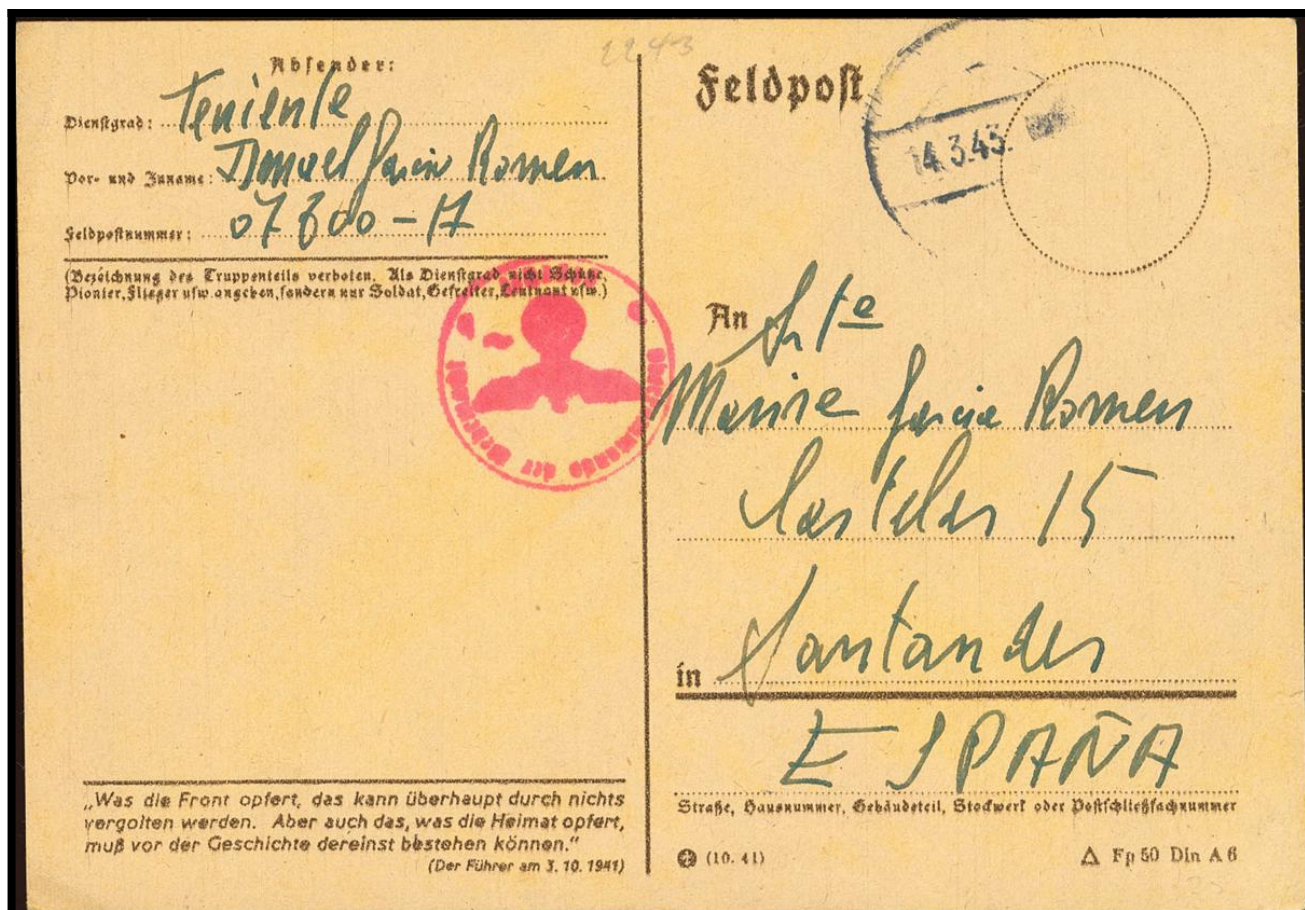 2243
Absender:
Dienstgrad: Teniente
Vor- und Zuname: Garcia Romen
Feldpostnummer: 07600-17
(Bezeichnung des Truppenteils verboten. Als Dienstgrad nicht Schütze,
Pionier, Flieger usw. angeben, sondern nur Soldat, Gefreiter, Leutnant usw.)
der
„Was die Front opfert, das kann überhaupt durch nichts
vergolten werden. Aber auch das, was die Heimat opfert,
muß vor der Geschichte dereinst bestehen können.“
(Der Führer am 3. 10. 1941)
Feldpost
14.3.43.
An Srta
Garcia Romen
Castelar 15
in Santander
ESPAÑA
Straße, Hausnummer, Gebäudeteil, Stockwerk oder Postschließfachnummer
(10. 41)
Fp 50 Din A 6